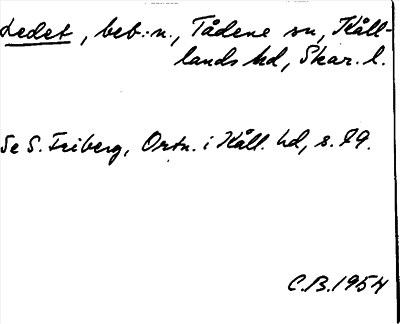 Ledet, beb.n., Tådene sn, Kåll-
lands hd, Skar. l.
Se S. Friberg, Ortn. i Kåll. hd, s. 89.
C.B. 1954